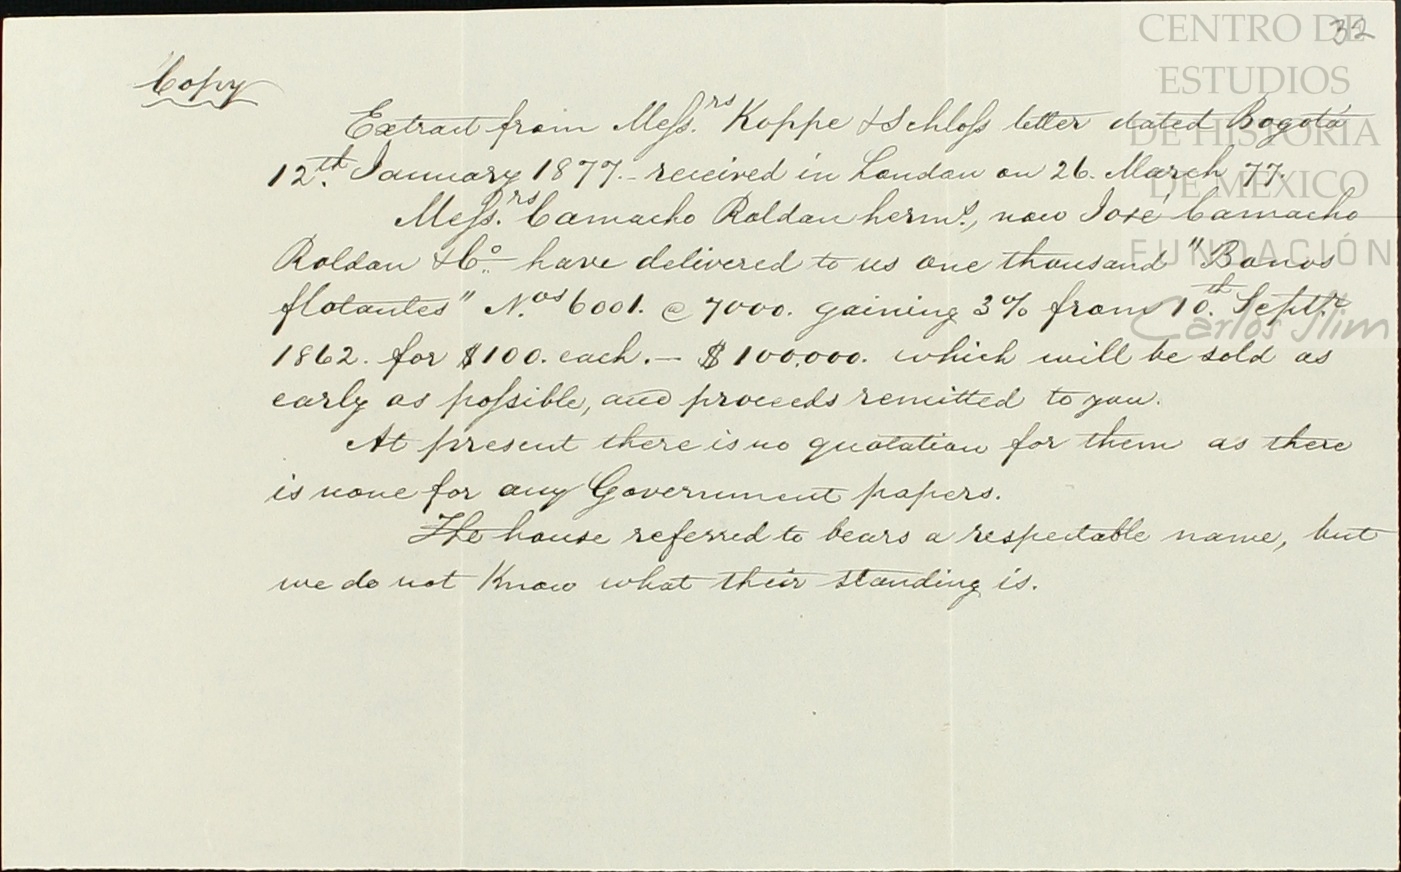 32
Copy
Extract from Mess.rs Koppe & Schloss letter dated Bogotá
12.th January 1877. - received in London on 26. March 77.
Mess.rs Camacho Roldan herm.s, now José Camacho
Roldan & Co. have delivered to us one thousand "Bonos
flotantes" N.os 6001. @ 7000. gaining 3% from 10.th Septr.
1862. for $100. each. - $100,000. which will be sold as
early as possible, and proceeds remitted to you.
At present there is no quotation for them as there
is none for any Government papers.
The house referred to bears a respectable name, but
we do not know what their standing is.
CENTRO DE
ESTUDIOS
DE HISTORIA
DE MÉXICO
FUNDACIÓN
Carlos Slim